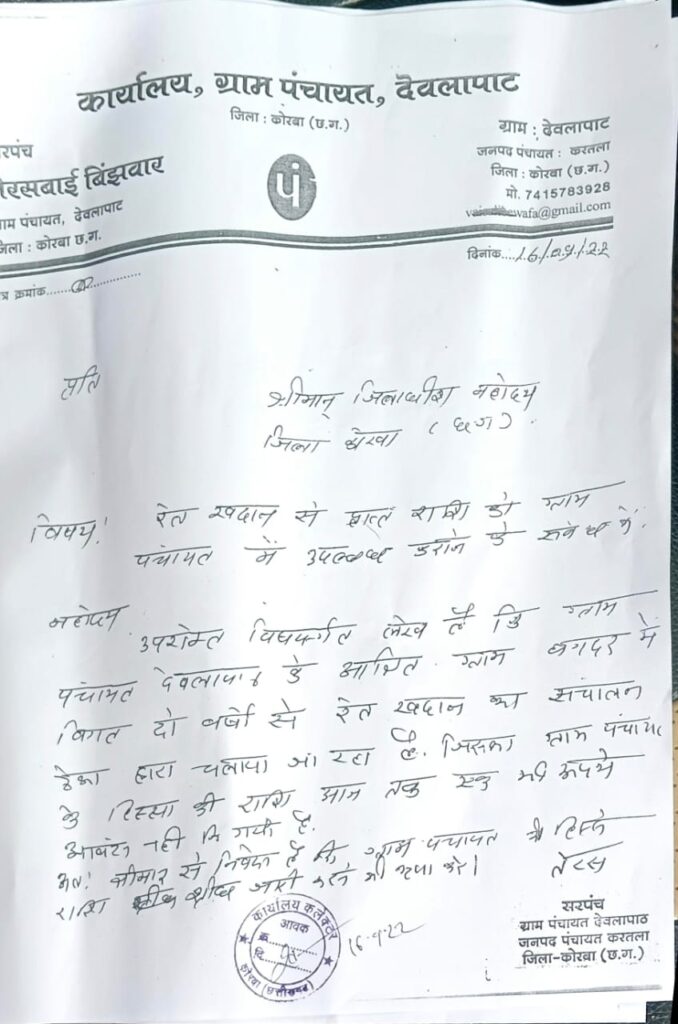 कार्यालय, ग्राम पंचायत, देवलापाट
जिला : कोरबा (छ.ग.)
रपंच
रसबाई बिंझवार
ाम पंचायत, देवलापाट
जिला : कोरबा छ.ग.
पं
ग्राम : देवलापाट
जनपद पंचायत : करतला
जिला : कोरबा (छ.ग.)
मो. 7415783928
@gmail.com
त्र क्रमांक
दिनांक....16/09/22
प्रति
श्रीमान् जिलाधीश महोदय
जिला कोरबा (छ.ग.)
विषय: रेत खदान से प्राप्त राशि को ग्राम
पंचायत में उपलब्ध कराने के संबंध में.
महोदय
उपरोक्त विषयांर्गत लेख है कि ग्राम
पंचायत देवलापाट के आश्रित ग्राम बगदर में
विगत दो वर्षो से रेत खदान का संचालन
ठेका द्वारा चलाया जा रहा है. जिसका ग्राम पंचायत
के हिस्सा की राशि आज तक एक भी रूपये
आबंटन नही कि गयी है.
अतः श्रीमान से निवेदन है कि ग्राम पंचायत की हिस्से
राशि शीघ्र जारी करने की कृपा करे।
सरपंच
ग्राम पंचायत देवलापाठ
जनपद पंचायत करतला
जिला-कोरबा (छ.ग.)
कार्यालय कलेक्टर
आवक
क्र.
दि.
कोरबा (छत्तीसगढ़)
16-9-22